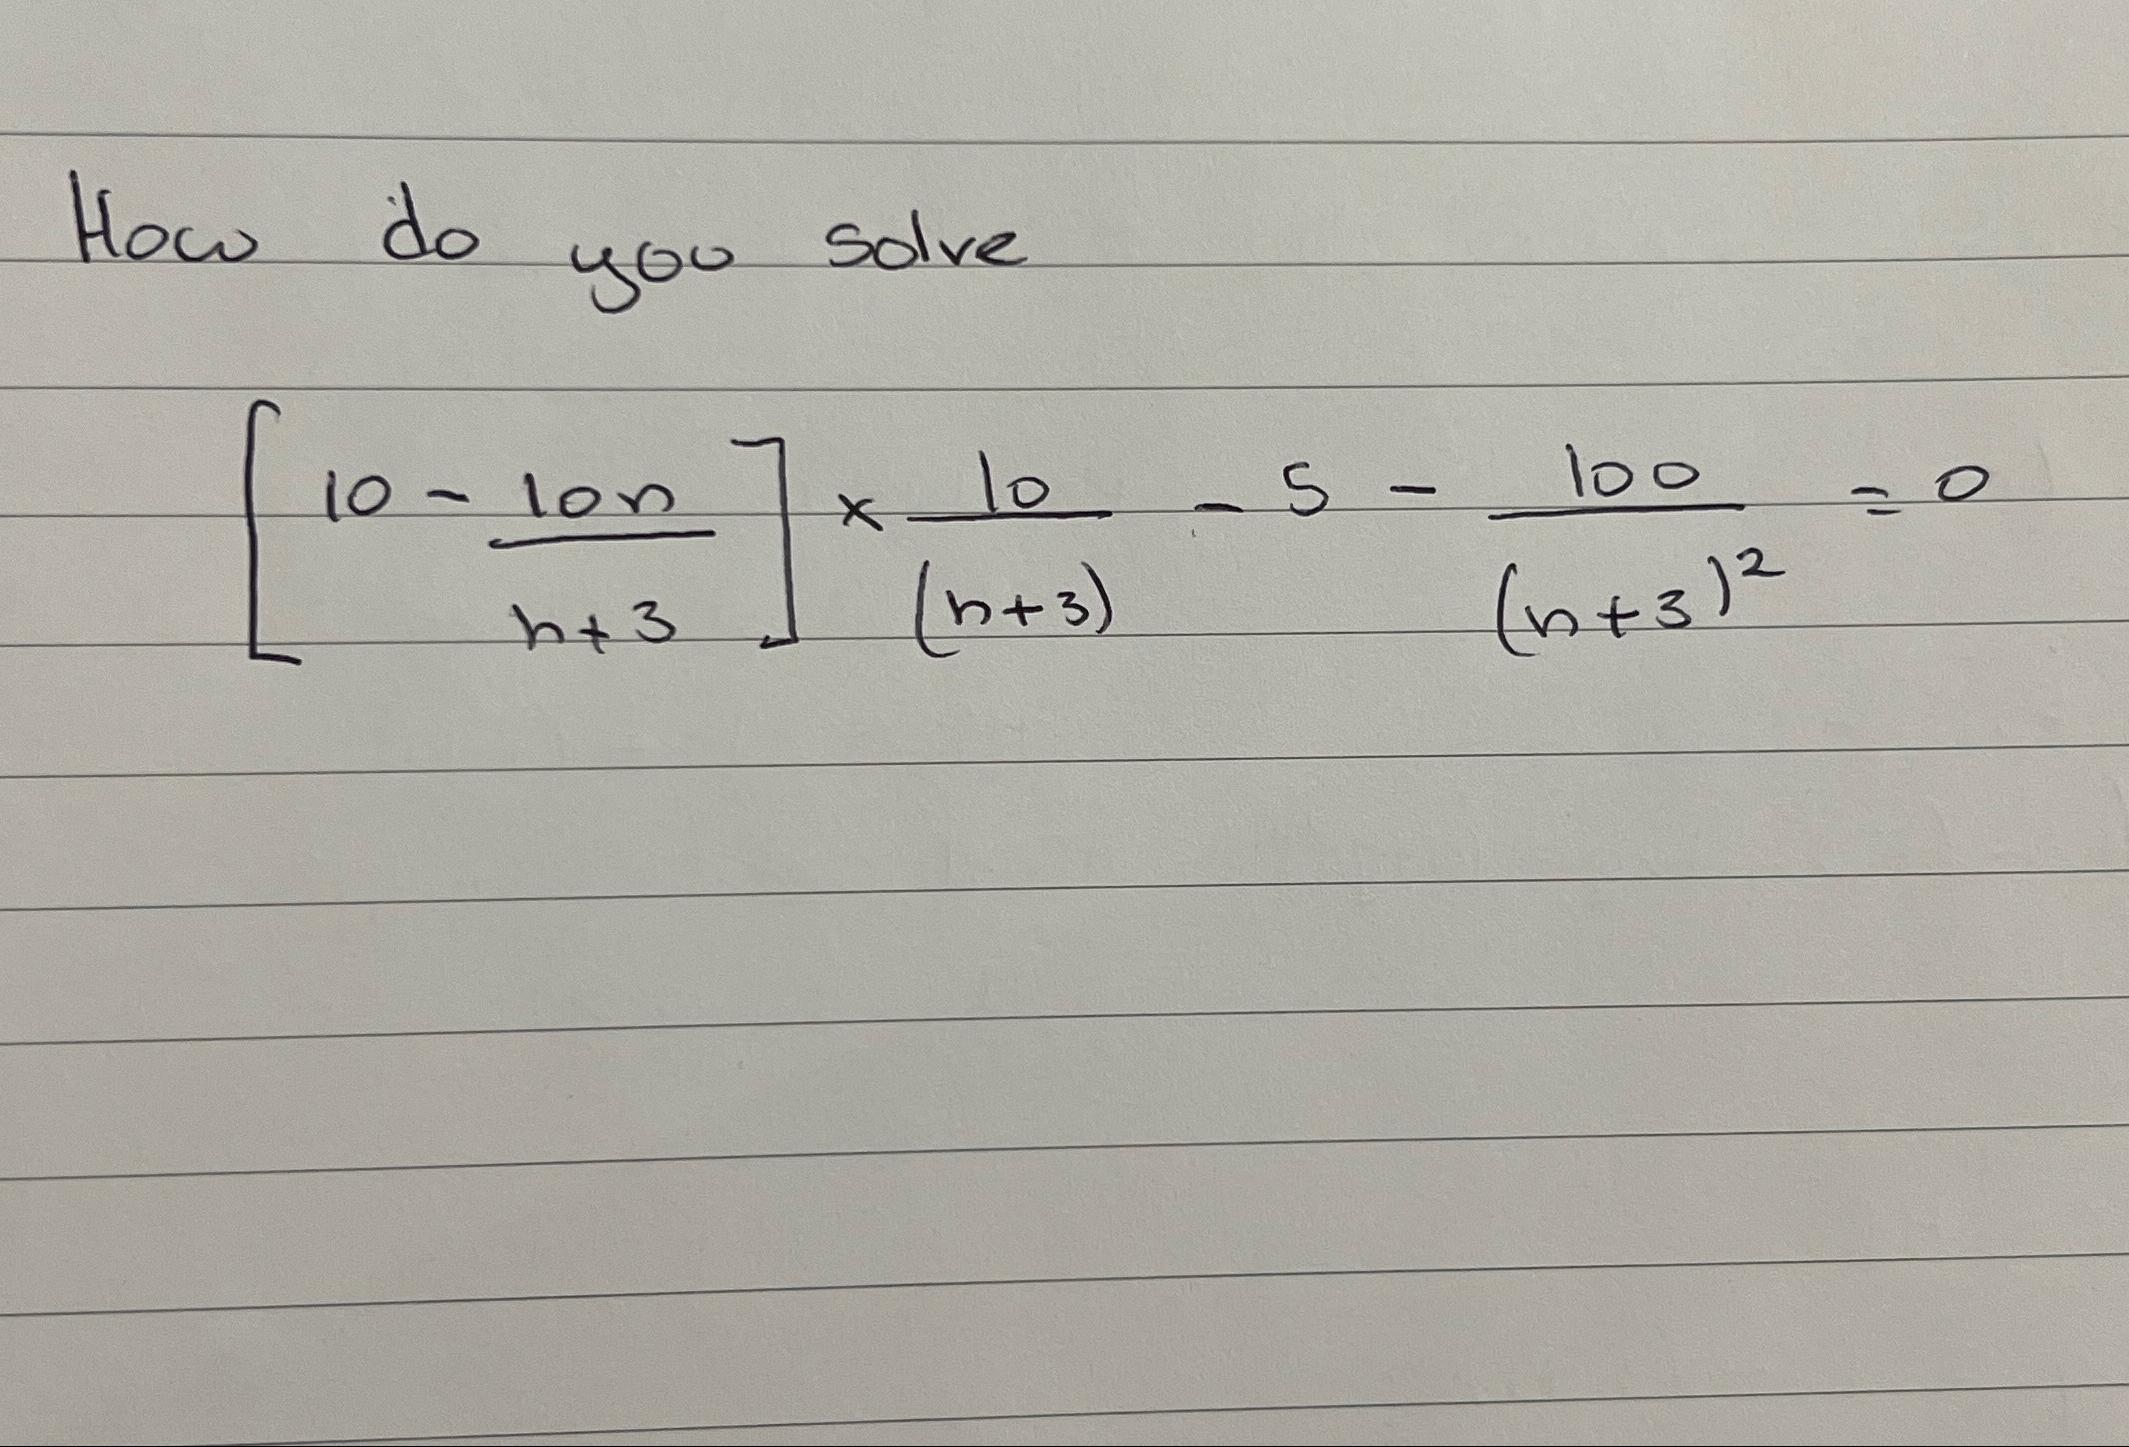 How do you solve
[10 - 10n/n+3] × 10/(n+3) - 5 - 100/(n+3)² = 0